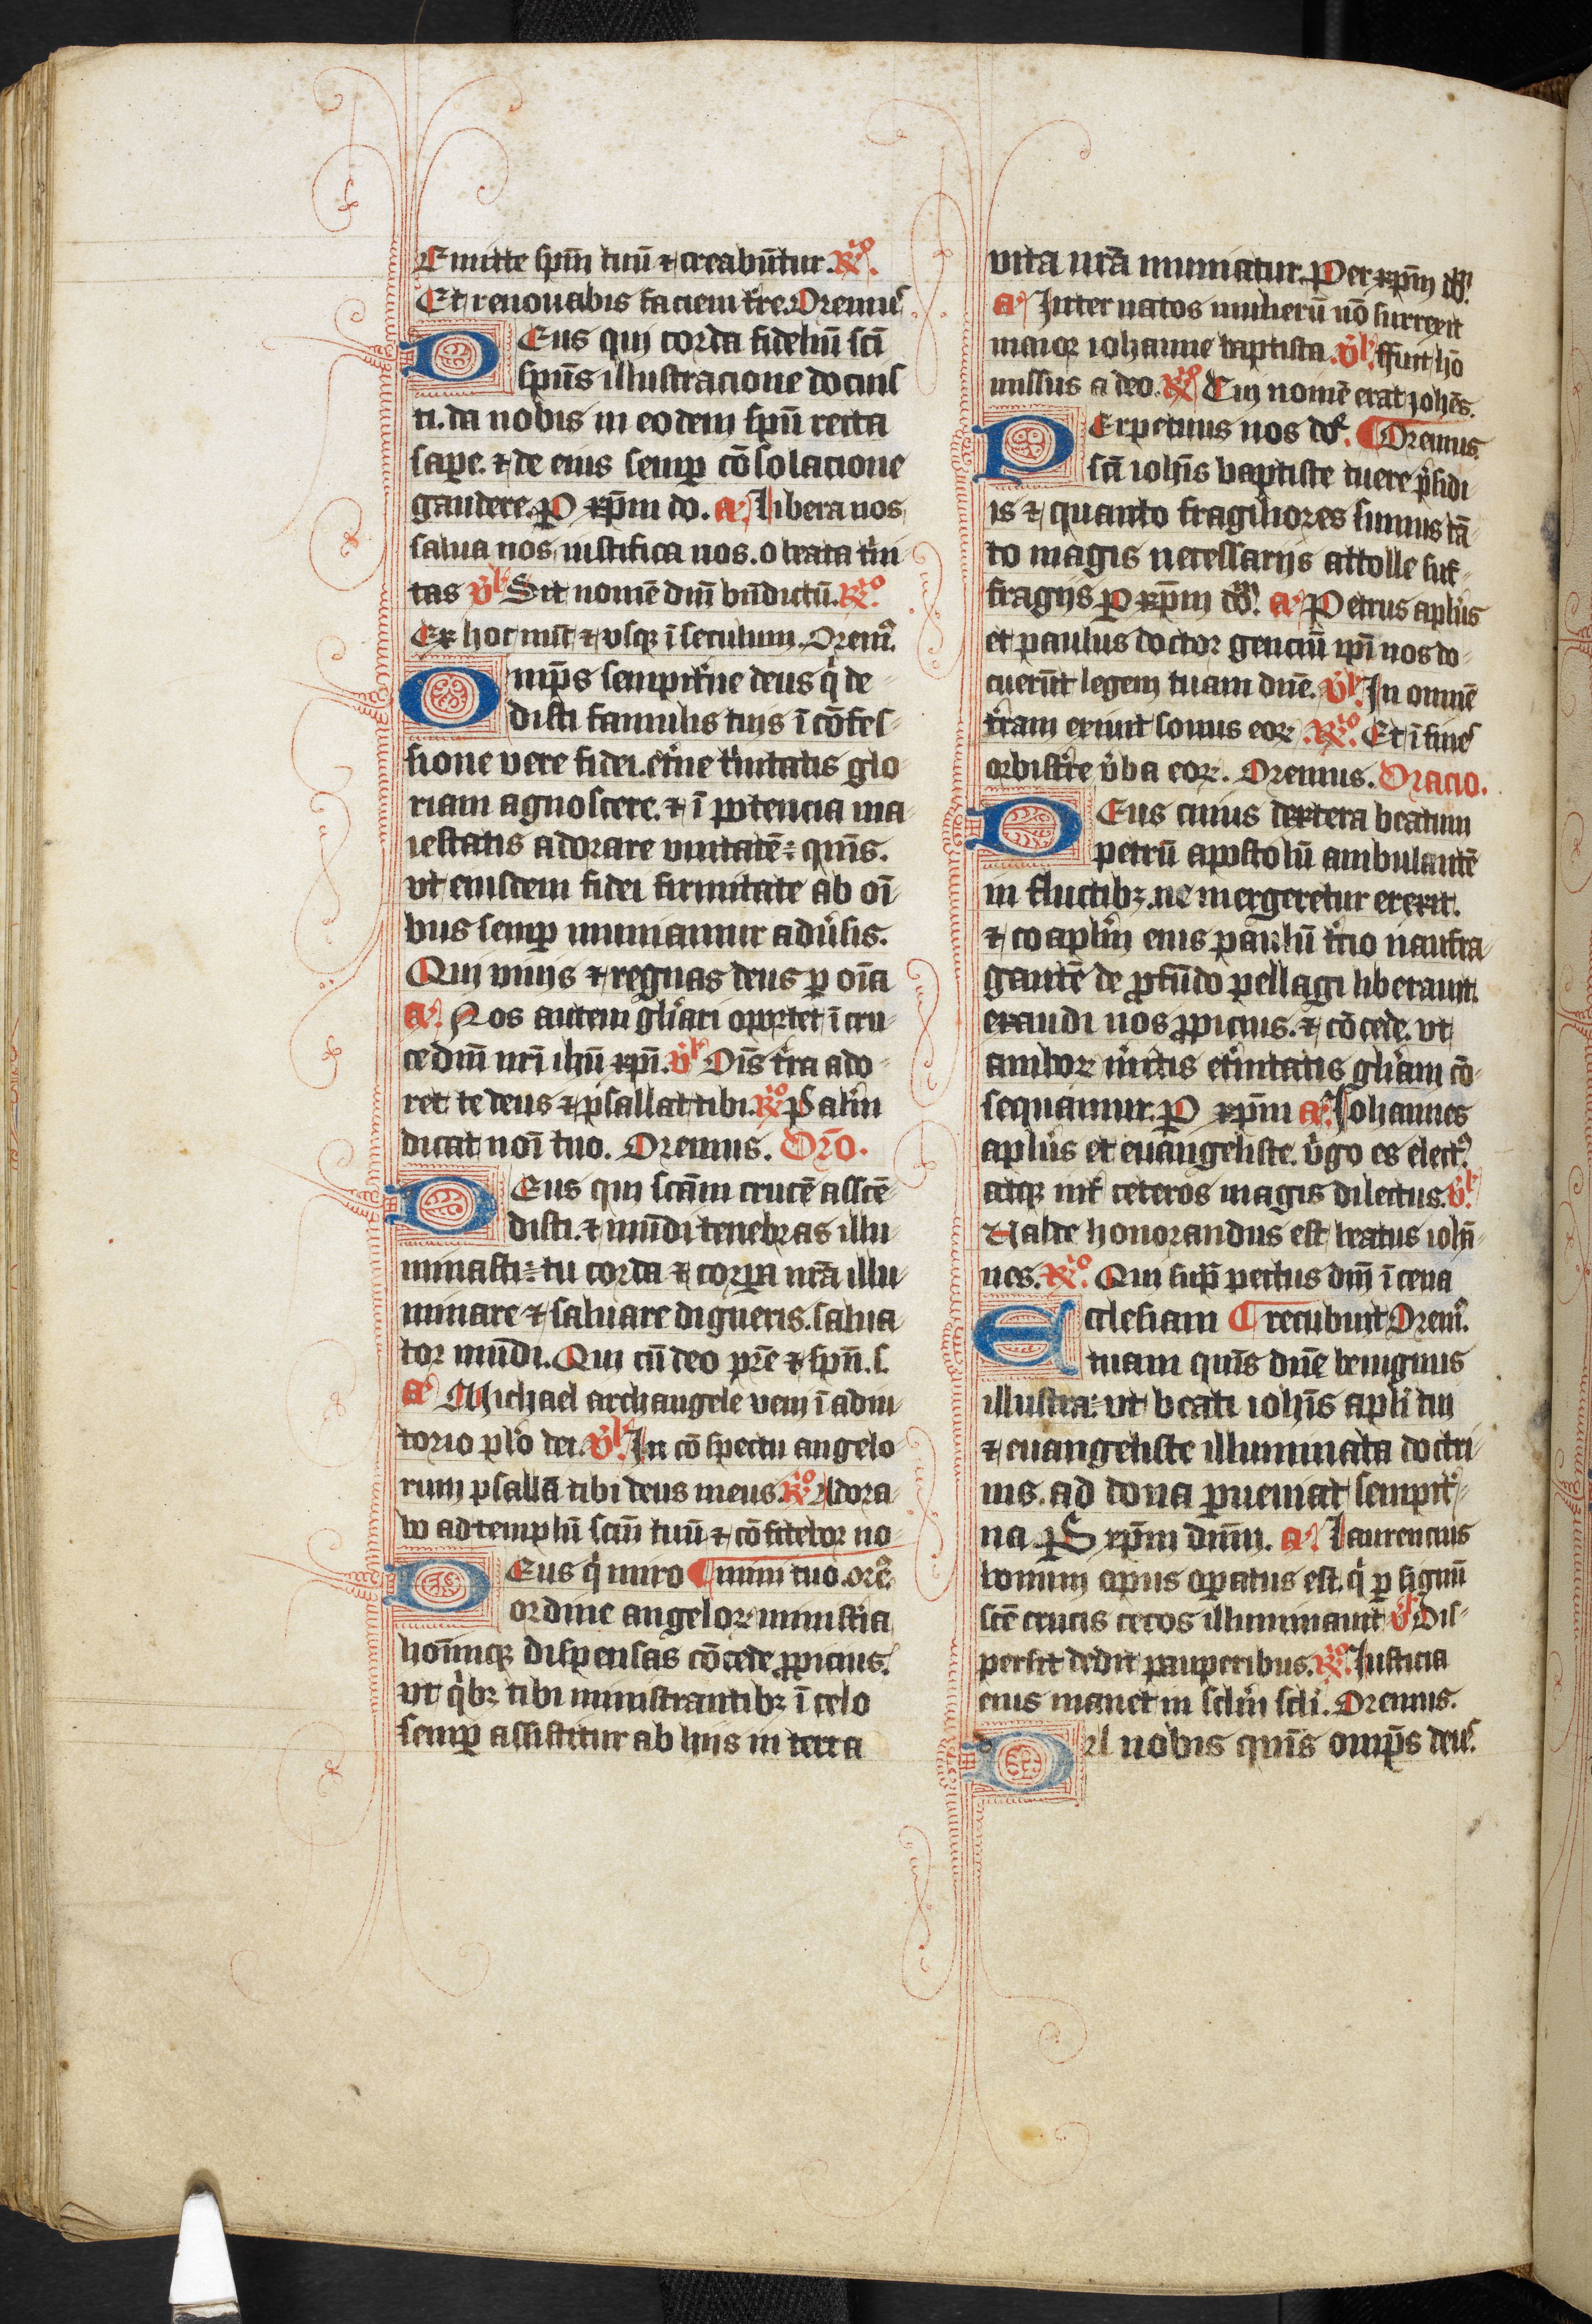 Emitte spm̄ tuū ⁊ creabūtur. R̓o.
Et renouabis faciem tr̄e. Oremus
DEus qui corda fideliū sc̄i
spūs illustracione docuis
ti. da nobis in eodem spū recta
sapere. ⁊ de eius semp̄ cōsolacione
gaudere. P xp̄m do. a. Libera nos
salua nos iustifica nos. o beata t̓ni
tas v̓s Sit nomē dn̄i bn̄dictū. R̓o.
Ex hoc nūc ⁊ vsqȝ ī seculum. Orem᷒.
Omp̄s sempit̓ne deus q̓ de
disti famulis tuis ī cōfes-
sione vere fidei. et̓ne t̓nitatis glo
riam agnoscere. ⁊ ī potencia ma
iestatis adorare vnitatē: qus̄.
vt eiusdem fidei firmitate ab oī
bus semp̄ muniamur adu̓sis.
Qui viuis ⁊ regnas deus p oīa
a. Nos autem gl̓iari oportet ī cru-
ce dn̄i nr̄i ihū xp̄i. v̓s Oīs t̓ra ado-
ret te deus ⁊ psallat tibi. R̓o Psalm̄
dicat noī tuo. Oremus. Or̄o.
DEus qui scām crucē asscē-
disti. ⁊ mūdi tenebras illu
minasti: tu corda ⁊ corpa nr̄a illu
minare ⁊ saluare digneris. salua
tor mūdi. Qui cū deo pr̄e ⁊ spū. s.
a. Michael archangele veni ī adiu
torio pl̓o dei. v̓s. In cōspectu angelo
rum psallā tibi deus meus. R̓o Adora
bo ad templū scm̄ tuū ⁊ cōfitebor no-
DEus q̓ miro ¶ mini tuo. ore᷒.
ordine angeloꝝ ministia
hoīmqȝ dispensas cōcede ꝓpicius.
vt q̓bȝ tibi ministrantibȝ ī celo
semp̄ assistitur ab hiis in terra
vita nr̄a muniatur. Per xp̄m do᷒.
a. Inter natos mulierū nō surrexit
maior iohanne baptista. v̓s. ffuit hō
missus a deo. R̓o Cui nomē erat iohēs.
PErpetuus nos do᷒. ¶ Oremus.
sc̄i ioh̄is baptiste tuere p̓sidi
is ⁊ quanto fragiliores sumus tā
to magis necessariis attolle suf-
fragiis P xp̄m do᷒. a. Petrus apl̓us
et paulus doctor genciū ip̄i nos do-
cuerūt legem tuam dn̄e. v̓s. In omnē
t̓ram exiuit sonus eoꝝ. R̓o. Et ī fines
orbis tr̄e v̓ba eoꝝ. Oremus. Oracio.
DEus cuius dextera beatum
petrū apostolū ambulantē
in fluctibȝ. ne mergeretur erexit.
⁊ coapl̓m eius paulū t̓cio naufra-
gantē de ꝓfūdo pellagi liberauit.
exaudi nos ꝓpicius. ⁊ cōcede. vt
amboꝝ m̓itis et̓nitatis gl̓iam cō-
sequamur. P xp̄m a. Iohannes
apl̓us et euangeliste. v̓go es elect᷒
atqȝ int̓ ceteros magis dilectus. v̓s.
Valde honorandus est beatus ioh̄a-
nes. R̓o. Qui sup̄ pectus dn̄i ī cena
Ecclesiam ¶ recubuit Orem᷒.
tuam qus̄ dn̄e benignus
illustra: vt beati ioh̄is apl̓i tui
⁊ euangeliste illuminata doctri-
nis. ad dona p̄ueniat sempit̓-
na P xp̄m dnm̄. a. Laurencius
bonum opus opatus est. q̓ p signū
scē crucis cecos illuminauit v̓s Dis-
persit dedit pauperibus. R̓o. Iusticia
eius manet in sclm̄ scli. Oremus.
DA nobis qus̄ omp̄s deus.